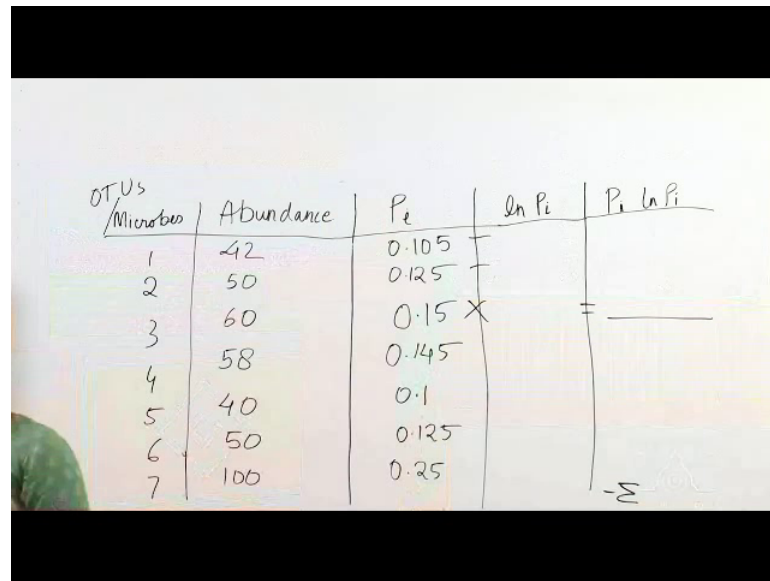 OTUs
/Microbes Abundance Pi ln Pi Pi ln Pi
1 42 0.105
2 50 0.125
3 60 0.15 X =
4 58 0.145
5 40 0.1
6 50 0.125
7 100 0.25
-Σ